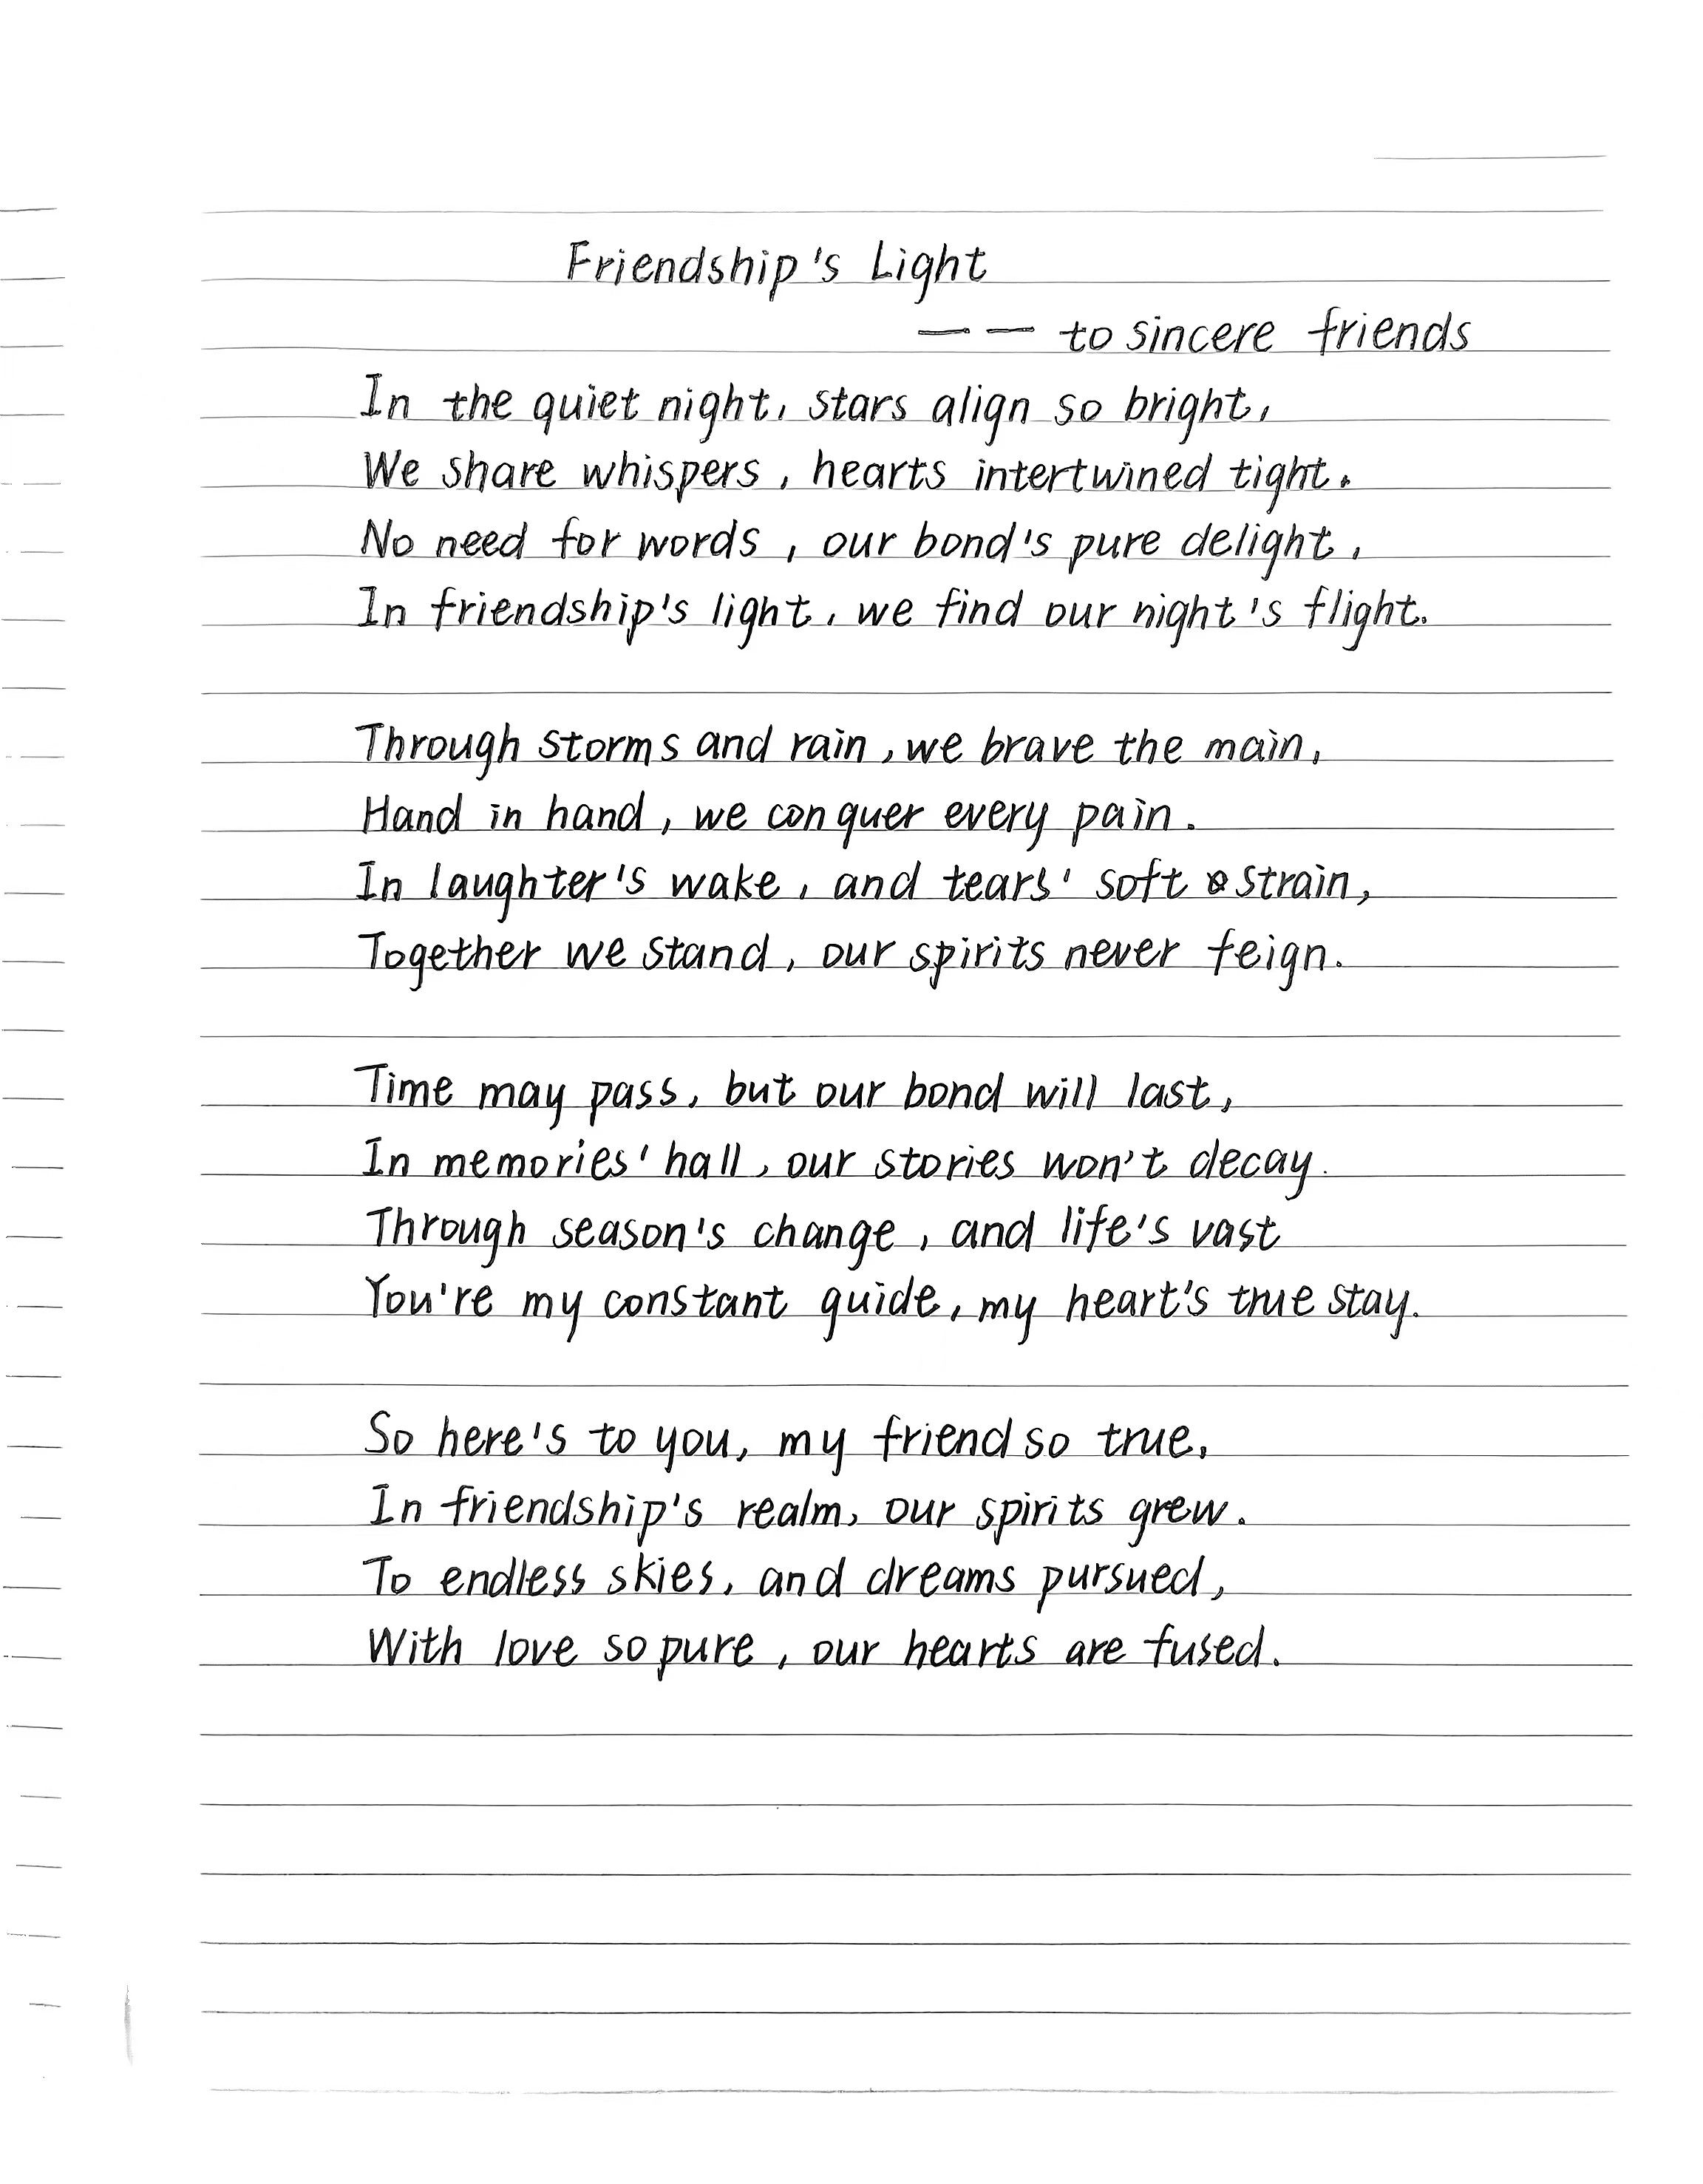 Friendship's Light
—— to sincere friends
In the quiet night, stars align so bright,
We share whispers, hearts intertwined tight.
No need for words, our bond's pure delight,
In friendship's light, we find our night's flight.
Through storms and rain, we brave the main,
Hand in hand, we conquer every pain.
In laughter's wake, and tears' soft strain,
Together we stand, our spirits never feign.
Time may pass, but our bond will last,
In memories' hall, our stories won't decay.
Through season's change, and life's vast
You're my constant guide, my heart's true stay.
So here's to you, my friend so true,
In friendship's realm, our spirits grew.
To endless skies, and dreams pursued,
With love so pure, our hearts are fused.